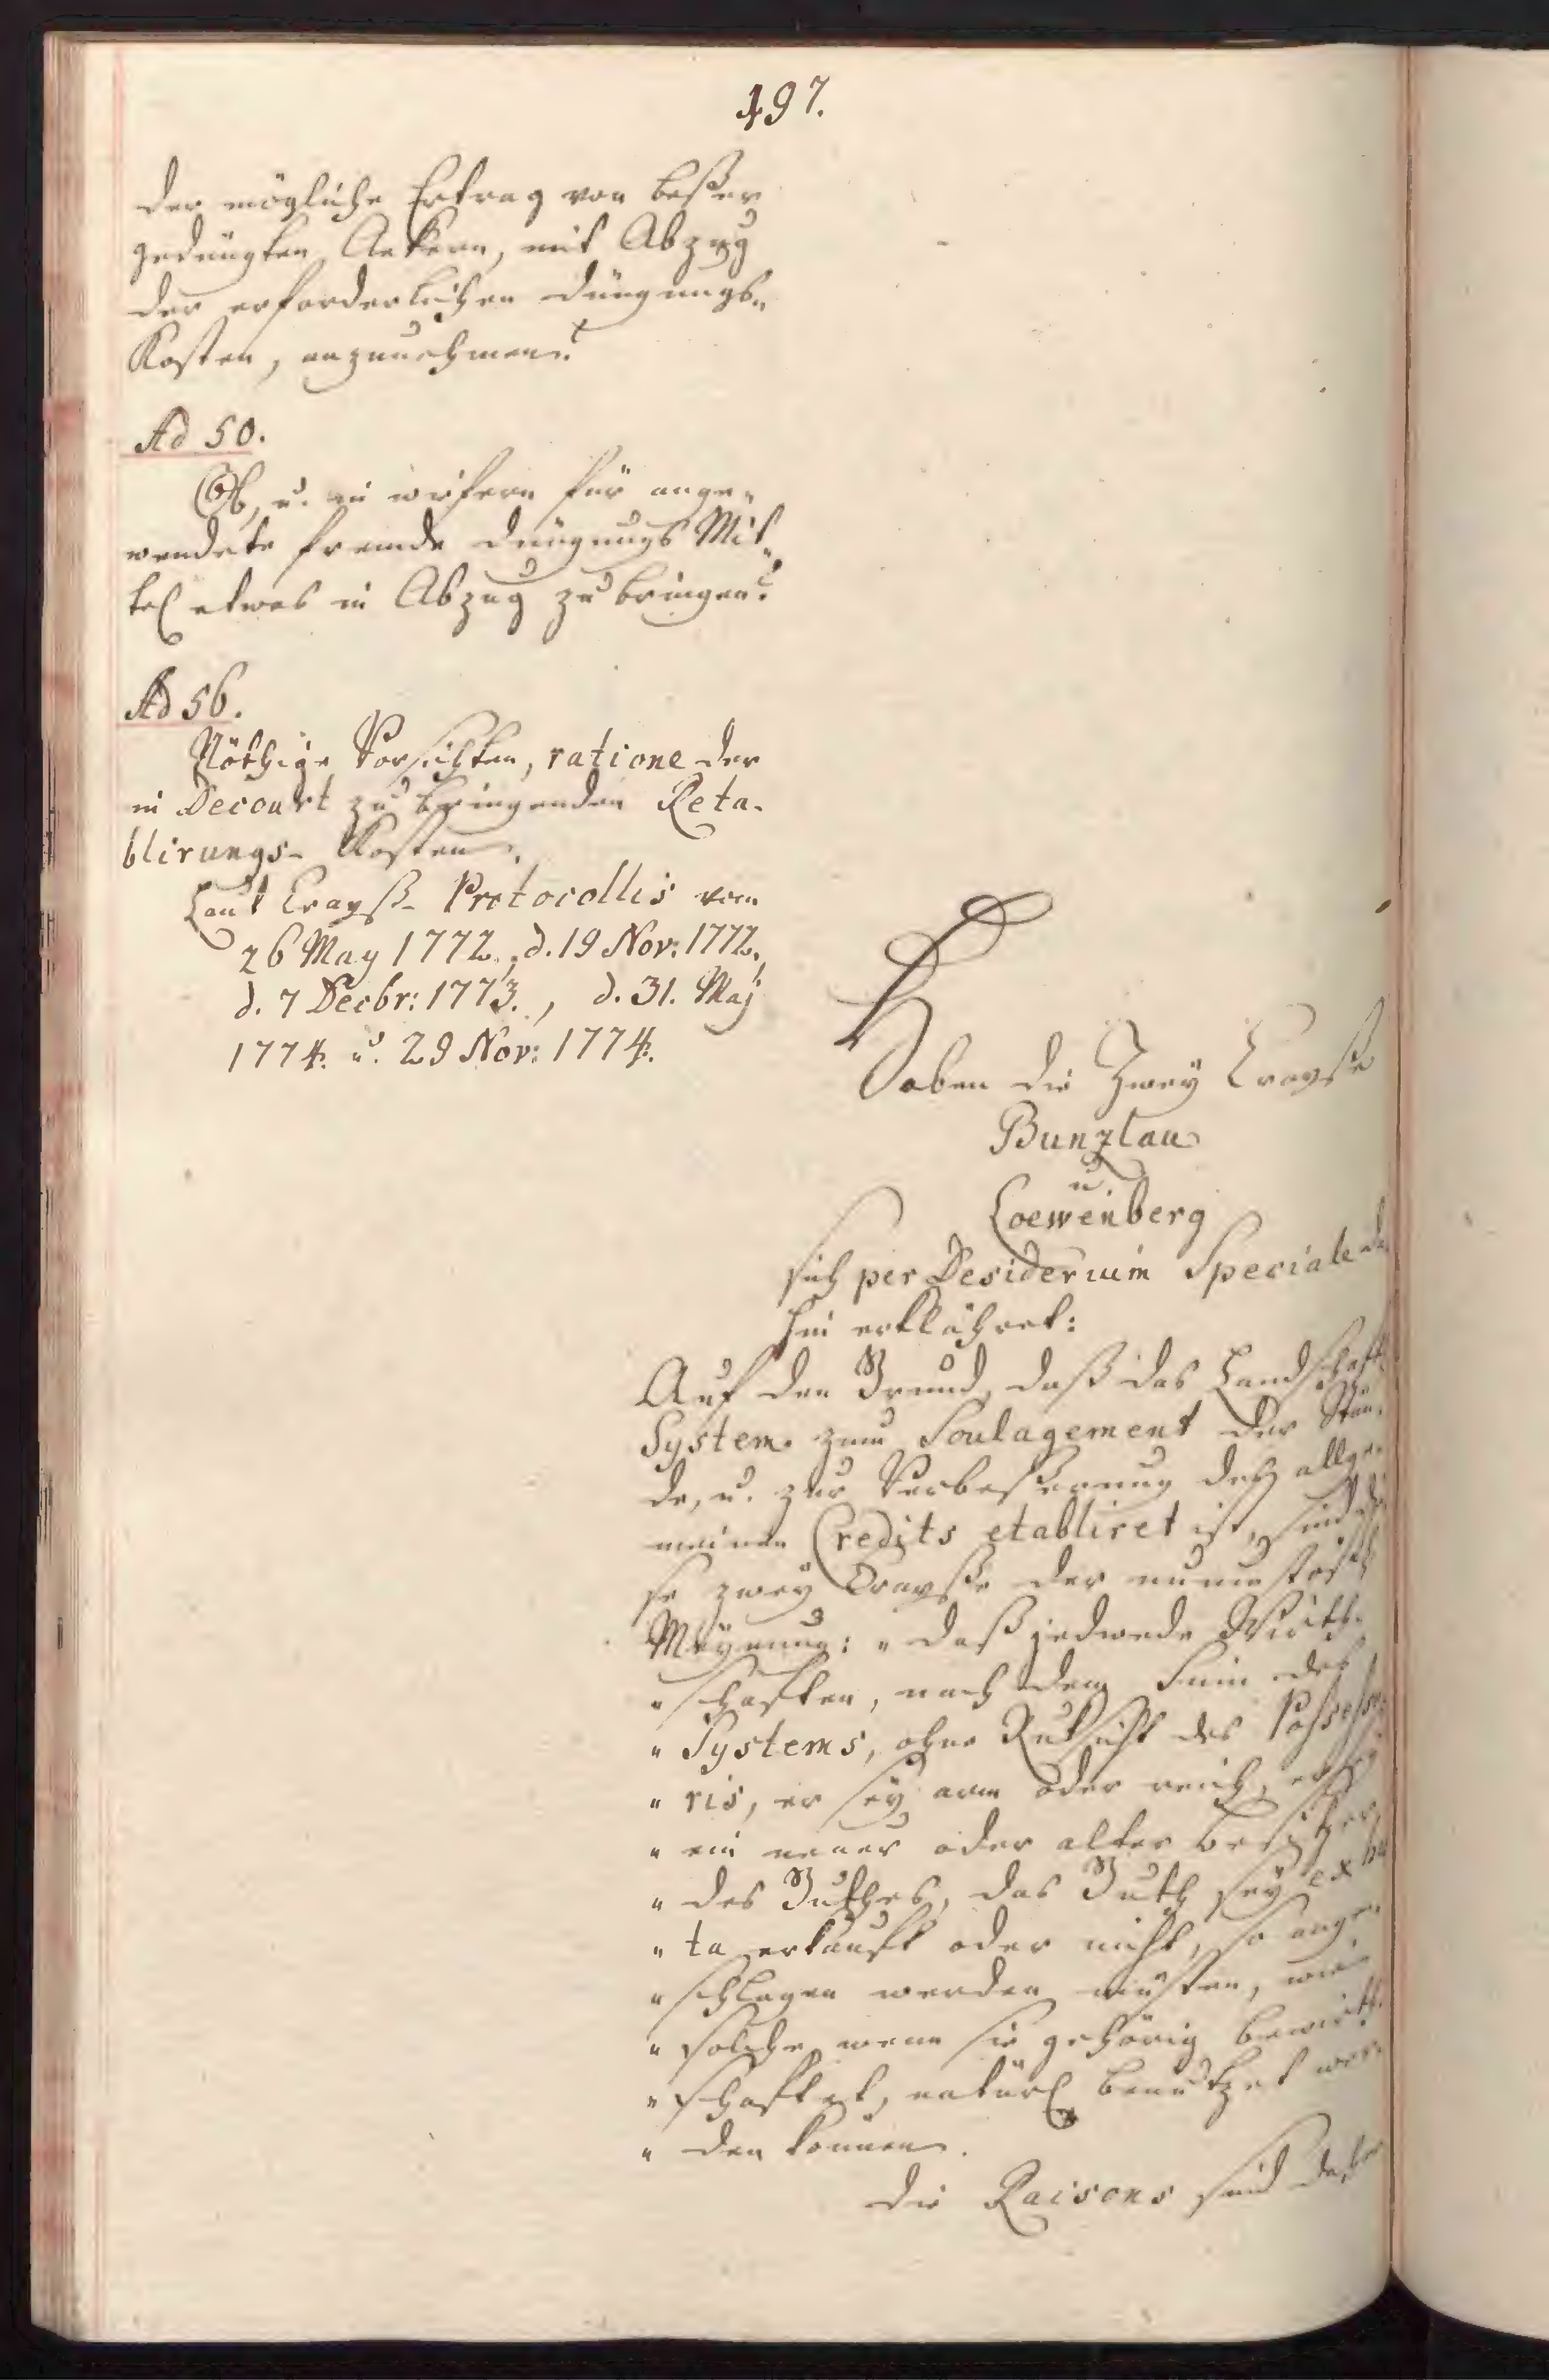 497.
der mögliche Ertrag von beßer
gedüngten Aekern, mit Abzug
der erforderlichen Düngungs-
Kosten, anzunehmen?
Ad 50.
Ob, u. in wiefern für ange-
wendete fremde Düngungs Mit-
tel etwas in Abzug zu bringen?
Ad 56.
Nöthige Vorsichten, ratione der
in Decourt zu bringenden Reta-
blirungs-Kosten.
Laut Crayß-Protocollis vom
26 May 1772., d. 19 Nov: 1772.,
d. 7 Decbr: 1773., d. 31. Maj
1774. u. 29 Nov: 1774.
Haben die Zwey Crayße
Bunzlau
u.
Loewenberg
sich per Desiderium Speciale da
hin erklähret:
Auf den Grund, daß das Landschafts
System zum Soulagement der Stän-
de, u. zur Verbeßerung des allge-
meinen Credits etabliret ist, sind die
se zwey Crayße der unumstößl
Meynung: "daß jedwede Wirth-
" schaften, nach dem Sinn des
" Systems, ohne Rüksicht des Possesso-
" ris, er sey arm oder reich, er sey
" ein neuer oder alter Besitzer
" des Guthes, das Guth sey ex has
" ta erkauft oder nicht, so ange-
" schlagen werden müsten, wie
" solche wenn sie gehörig bewirth-
" schaftet, natürl benutzet wer-
" den können.
Die Raisons sind daher